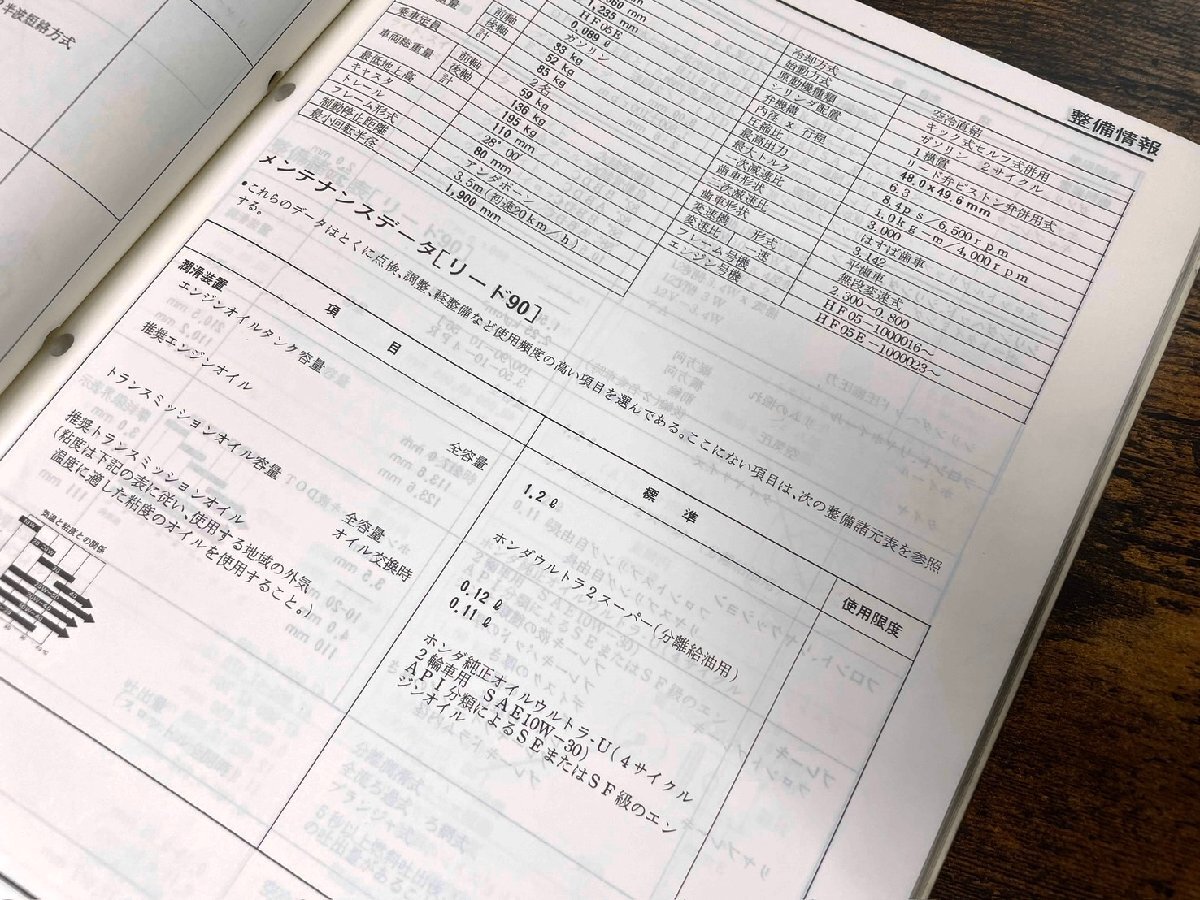 半波短絡方式
整備情報
1,235 mm
HF05E
0.089ℓ
ガソリン
乗車定量
車両総重量
前輪
後輪
計
33 kg
52 kg
85 kg
2名
59 kg
136 kg
195 kg
最低地上高
110 mm
キャスタ
26°00′
トレール
80 mm
フレーム形式
アンダボーン
制動停止距離
3.5m(初速20km/h)
最小回転半径
1,900 mm
冷却方式
空冷直結
始動方式
キック式セルフ式併用
原動機種類
ガソリン・2サイクル
シリンダ配置
1横置
弁機構
リード弁ピストン弁併用式
内径×行程
48.0×49.6mm
圧縮比
6.3
最高出力
8.4ps/6,500rpm
最大トルク
1.0kg-m/4,000rpm
一次減速比
3.000
歯車形状
はすば歯車
二次減速比
3.142
歯車形状
平歯車
変速機 形式
無段変速式
変速比 一速
2.300-0.800
フレーム号機
HF05-1000016~
エンジン号機
HF05E-1000023~
メンテナンスデータ[リード90]
•これらのデータはとくに点検、調整、軽整備など使用頻度の高い項目を選んである。ここにない項目は、次の整備諸元表を参照
する。
項 目
標 準
使用限度
潤滑装置
エンジンオイルタンク容量
全容量
1.2ℓ
推奨エンジンオイル
ホンダウルトラ2スーパー(分離給油用)
トランスミッションオイル容量
全容量
0.12ℓ
オイル交換時
0.11ℓ
推奨トランスミッションオイル
(粘度は下記の表に従い、使用する地域の外気
温度に適した粘度のオイルを使用すること。)
ホンダ純正オイルウルトラ-U(4サイクル
2輪車用 SAE10W-30)
API分類によるSEまたはSF級のエン
ジンオイル
気温と粘度との関係